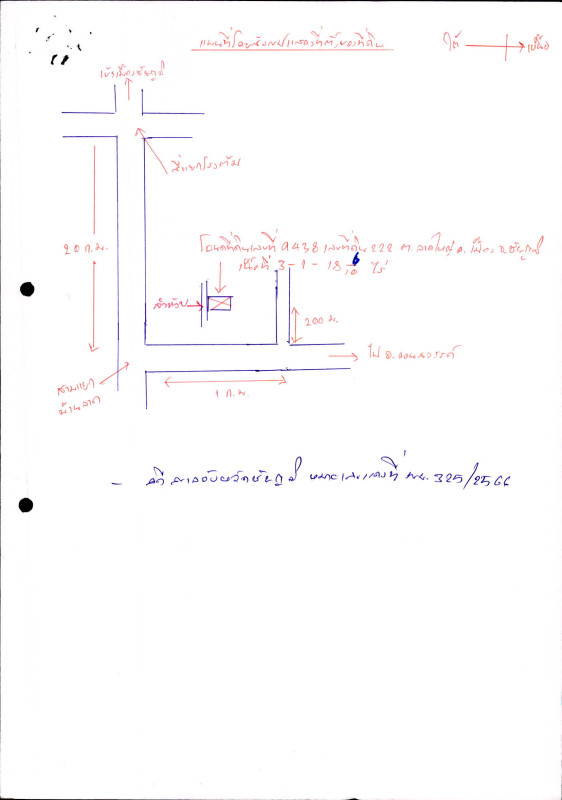 แผนที่โดยสังเขปแสดงที่ตั้งของที่ดิน
ใต้ เหนือ
เข้าเมืองชัยภูมิ
สี่แยกโรงต้ม
20 ก.ม.
โฉนดที่ดินเลขที่ 9438 เลขที่ดิน 222 ต.ลาดใหญ่ อ.เมือง จ.ชัยภูมิ
เนื้อที่ 3-1-18 6/10 ไร่
ลำห้วย
200 ม.
ไป จ.นครสวรรค์
สามแยก
บ้านลาด
1 ก.ม.
- คดี ศาลจังหวัดชัยภูมิ หมายเลขแดงที่ 325/2566